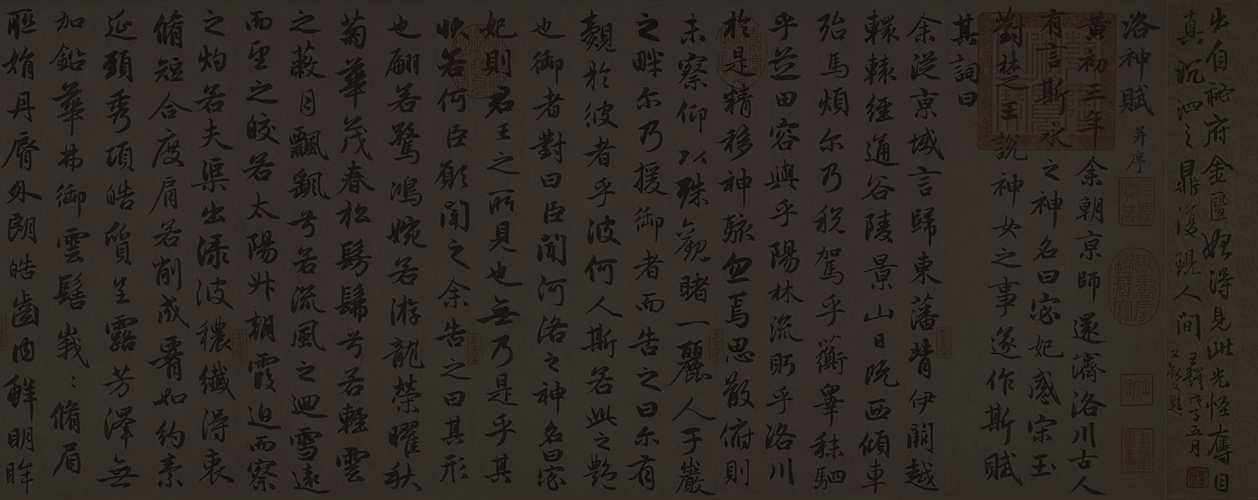 出自秘府金匱始得見此光怪奪目
真沉泗之鼎復現人間
洛神賦 并序
黃初三年余朝京師還濟洛川古人
有言斯水之神名曰宓妃感宋玉
對楚王說神女之事遂作斯賦
其詞曰
余從京域言歸東藩背伊闕越
轘轅經通谷陵景山日既西傾車
殆馬煩爾乃稅駕乎蘅皋秣駟
乎芝田容與乎陽林流眄乎洛川
於是精移神駭忽焉思散俯則
未察仰以殊觀睹一麗人于巖
之畔爾乃援御者而告之曰爾有
覿於彼者乎彼何人斯若此之艷
也御者對曰臣聞河洛之神名曰宓
妃則君王之所見也無乃是乎其
狀若何臣願聞之余告之曰其形
也翩若驚鴻婉若游龍榮曜秋
菊華茂春松髣髴兮若輕雲
之蔽月飄颻兮若流風之迴雪遠
而望之皎若太陽升朝霞迫而察
之灼若夫渠出淥波穠纖得衷
脩短合度肩若削成署如約素
延頸秀項皓質呈露芳澤無
加鉛華弗御雲髻峩峩脩眉
聯娟丹脣外朗皓齒內鮮明眸